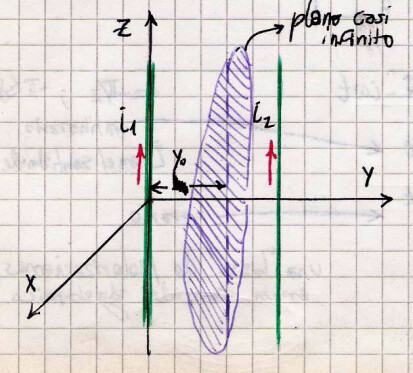 plano casi
infinito
Z
i1
i2
Y0
Y
X